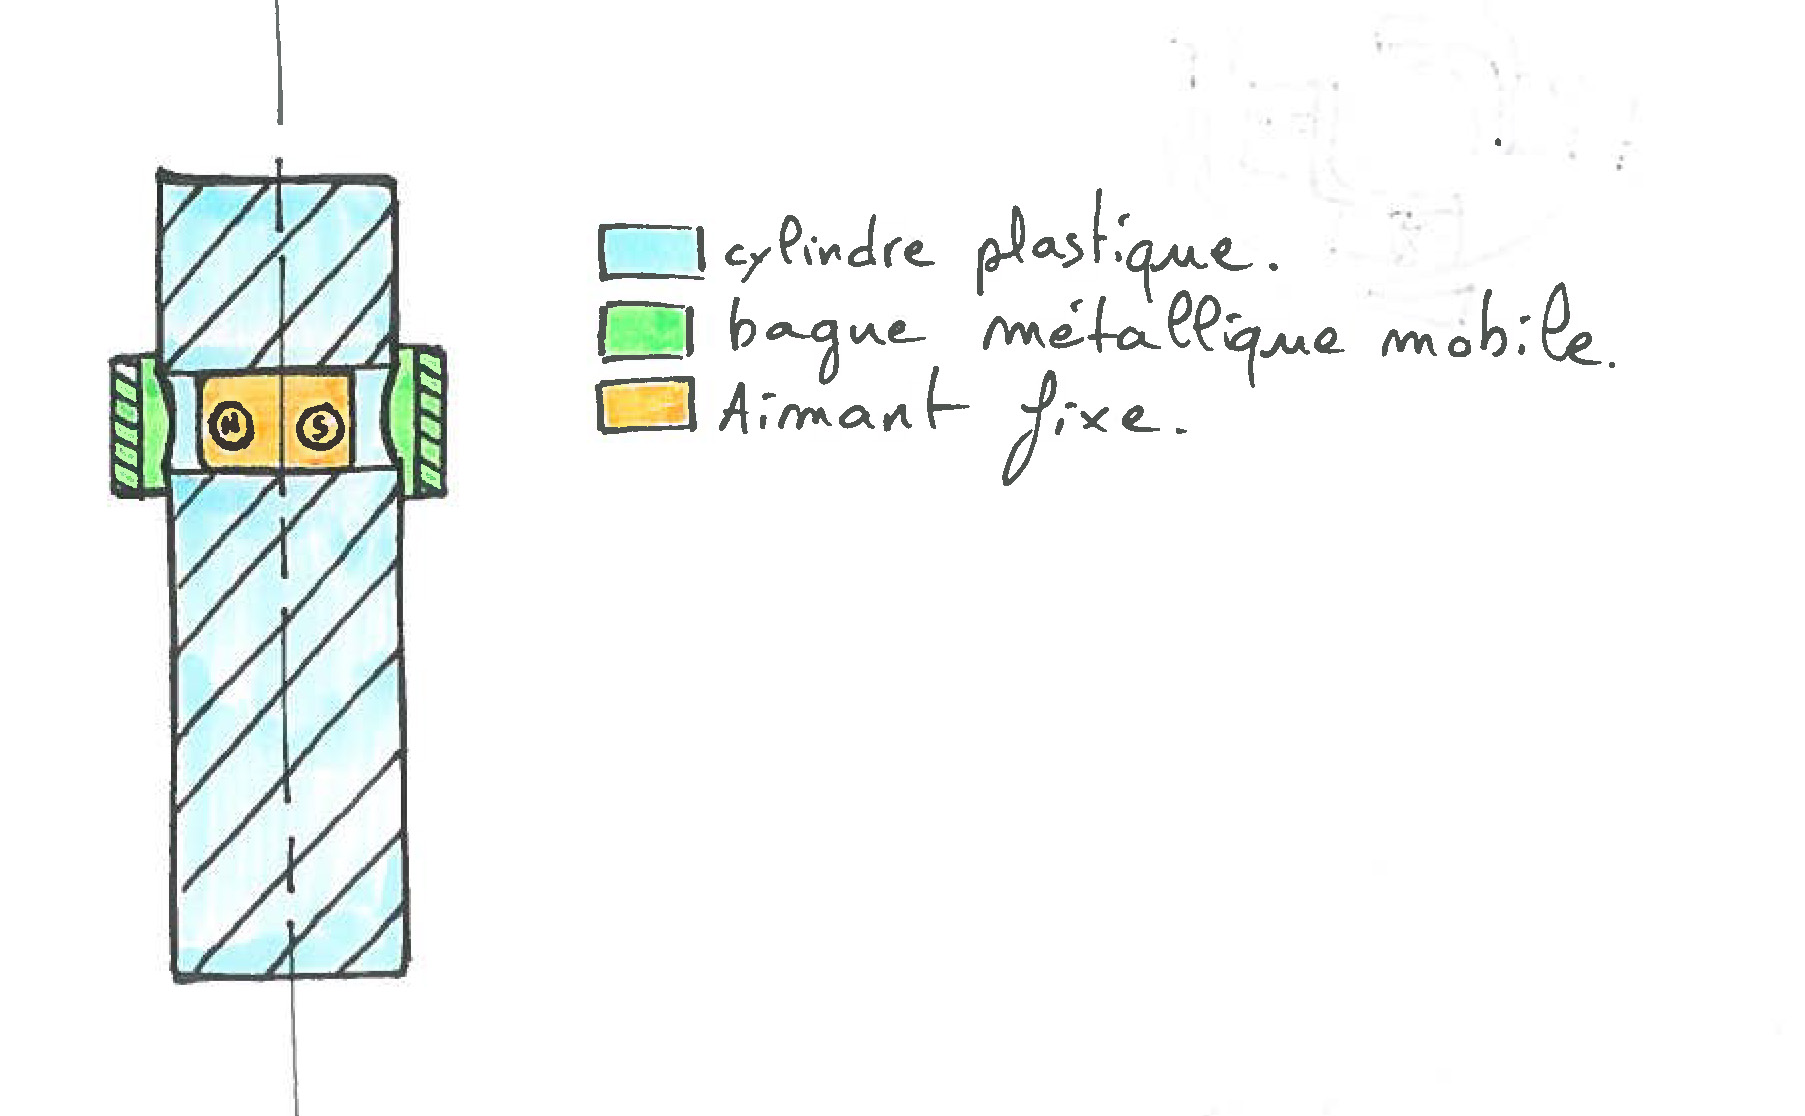 cylindre plastique.
bague métallique mobile.
N S Aimant fixe.